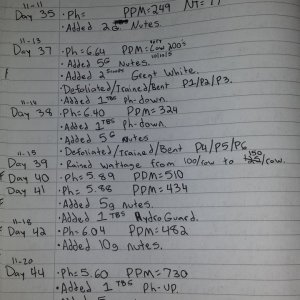 11-11
Day 35 • Ph= PPM=249
• Added 2G Nutes.
11-13
Day 37 • Ph=6.64 PPM= Low 200's
• Added 5G Nutes.
• Added 2 Scoops Great White.
• Defoliated/Trained/Bent P1/P2/P3.
11-14 • Added 1 TBS Ph-down.
Day 38 • Ph=6.40 PPM=324
• Added 1 TBS Ph-down.
• Added 5G Nutes
11-15 • Defoliated/Trained/Bent P4/P5/P6
Day 39 • Rained Wattage from 100/cow to 150/cow.
Day 40 • Ph=5.89 PPM=510
Day 41 • Ph=5.88 PPM=434
• Added 5g nutes.
11-18 • Added 1 TBS HydroGuard.
Day 42 • Ph=6.04 PPM=482
• Added 10g nutes.
11-20
Day 44 • Ph=5.60 PPM=730
• Added 1 TBS Ph-UP.